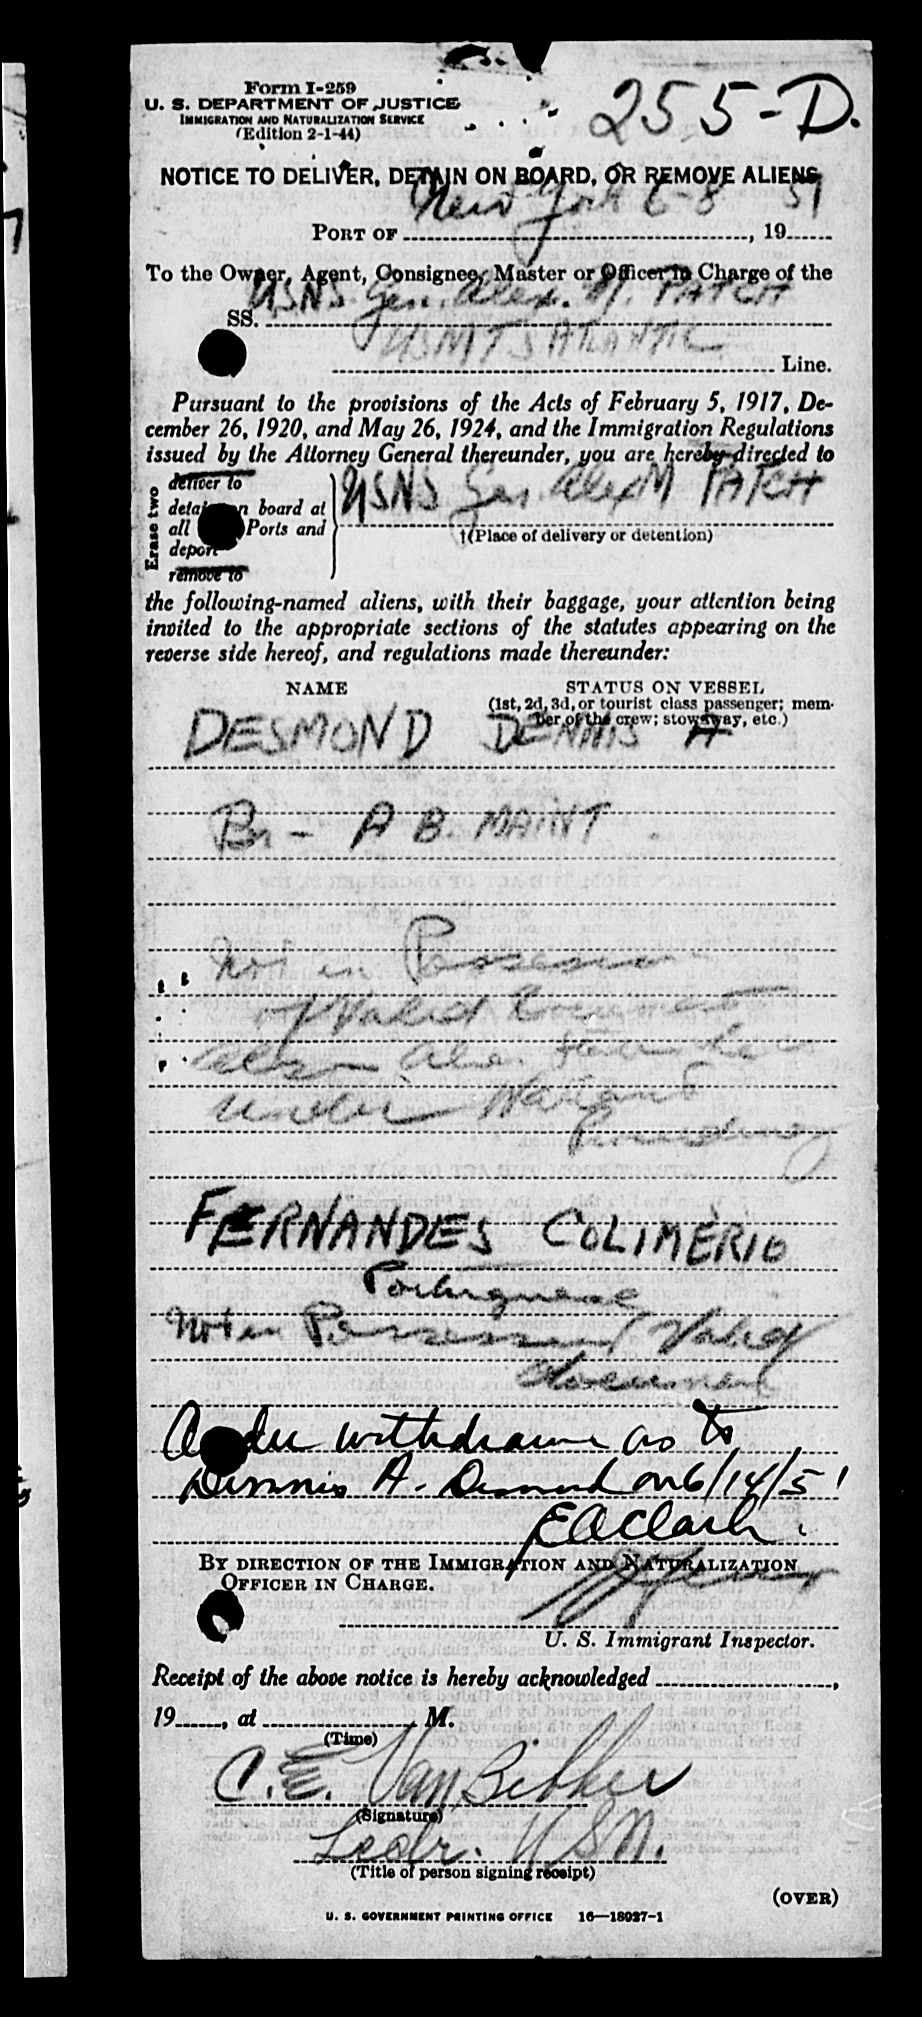 Form I-259
U. S. DEPARTMENT OF JUSTICE
IMMIGRATION AND NATURALIZATION SERVICE
(Edition 2-1-44)
255-D.
NOTICE TO DELIVER, DETAIN ON BOARD, OR REMOVE ALIENS
PORT OF New York 6-8, 1951
To the Owner, Agent, Consignee, Master or Officer in Charge of the
SS. USNS Gen. Alex. M. PATCH
USMTS ATLANTIC Line.
Pursuant to the provisions of the Acts of February 5, 1917, De-
cember 26, 1920, and May 26, 1924, and the Immigration Regulations
issued by the Attorney General thereunder, you are hereby directed to
Erase two
deliver to
detain on board at
all Ports and
deport
remove to
USNS Gen Alex M PATCH
†(Place of delivery or detention)
the following-named aliens, with their baggage, your attention being
invited to the appropriate sections of the statutes appearing on the
reverse side hereof, and regulations made thereunder:
NAME STATUS ON VESSEL
(1st, 2d, 3d, or tourist class passenger; mem-
ber of the crew; stowaway, etc.)
DESMOND DENNIS A
Br - A B. MAINT
Not in Possession
of Valid Document
also
under Warrant
Proceedings
FERNANDES COLIMERIO
Portuguese
Not in Possession Valid
document
Order withdrawn as to
Dennis A. Desmond on 6/14/51
EAClark.
BY DIRECTION OF THE IMMIGRATION AND NATURALIZATION
OFFICER IN CHARGE.
U. S. Immigrant Inspector.
Receipt of the above notice is hereby acknowledged ,
19 , at , M.
(Time)
C. E. Van Bibber
(Signature)
Lcdr. USN.
(Title of person signing receipt)
(OVER)
U. S. GOVERNMENT PRINTING OFFICE 16—18027-1